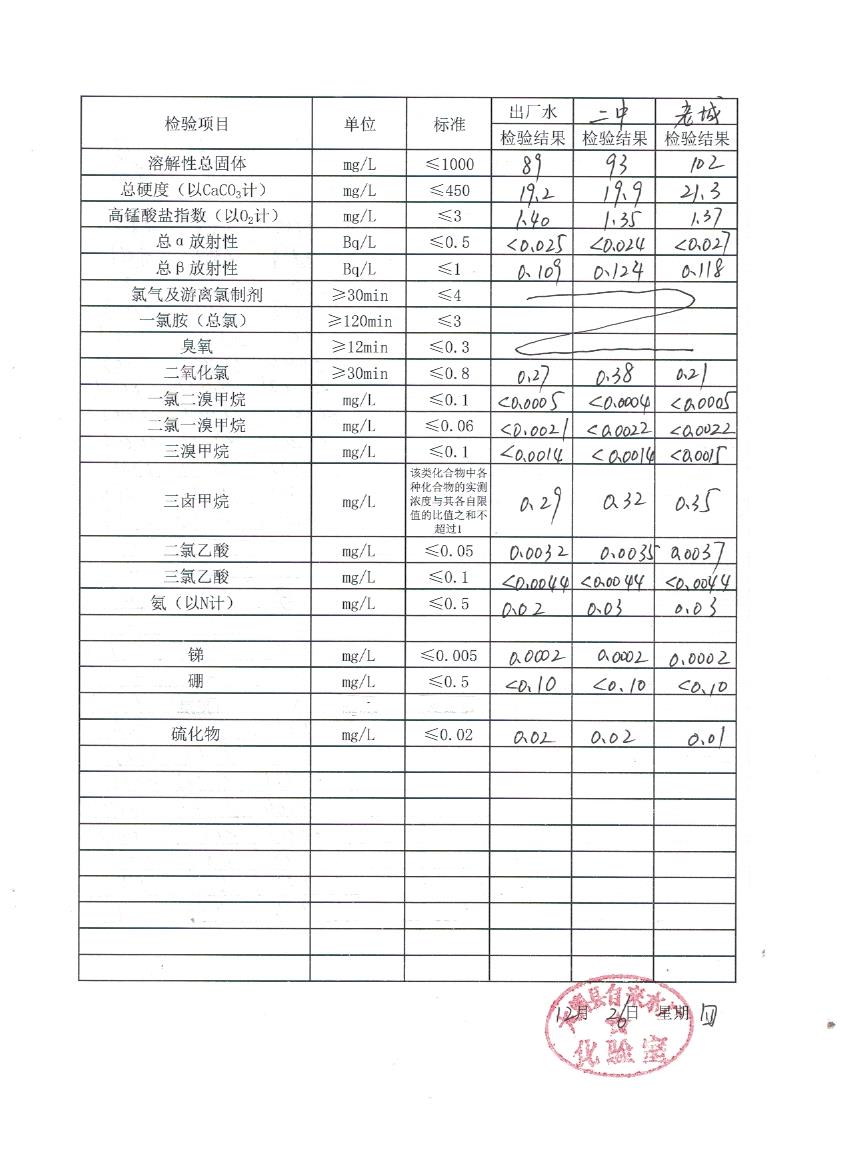 检验项目 单位 标准 出厂水 二中 老城
检验结果 检验结果 检验结果
溶解性总固体 mg/L ≤1000 89 93 102
总硬度（以CaCO₃计） mg/L ≤450 19.2 19.9 21.3
高锰酸盐指数（以O₂计） mg/L ≤3 1.40 1.35 1.37
总α放射性 Bq/L ≤0.5 <0.025 <0.024 <0.027
总β放射性 Bq/L ≤1 0.109 0.124 0.118
氯气及游离氯制剂 ≥30min ≤4
一氯胺（总氯） ≥120min ≤3
臭氧 ≥12min ≤0.3
二氧化氯 ≥30min ≤0.8 0.27 0.38 0.21
一氯二溴甲烷 mg/L ≤0.1 <0.0005 <0.0004 <0.0005
二氯一溴甲烷 mg/L ≤0.06 <0.0021 <0.0022 <0.0022
三溴甲烷 mg/L ≤0.1 <0.0014 <0.0014 <0.0015
三卤甲烷 mg/L 该类化合物中各
种化合物的实测
浓度与其各自限
值的比值之和不
超过1 0.29 0.32 0.35
二氯乙酸 mg/L ≤0.05 0.0032 0.0035 0.0037
三氯乙酸 mg/L ≤0.1 <0.0044 <0.0044 <0.0044
氨（以N计） mg/L ≤0.5 0.02 0.03 0.03
锑 mg/L ≤0.005 0.0002 0.0002 0.0002
硼 mg/L ≤0.5 <0.10 <0.10 <0.10
硫化物 mg/L ≤0.02 0.02 0.02 0.01
县自来水
12月 26日 星期四
化验室